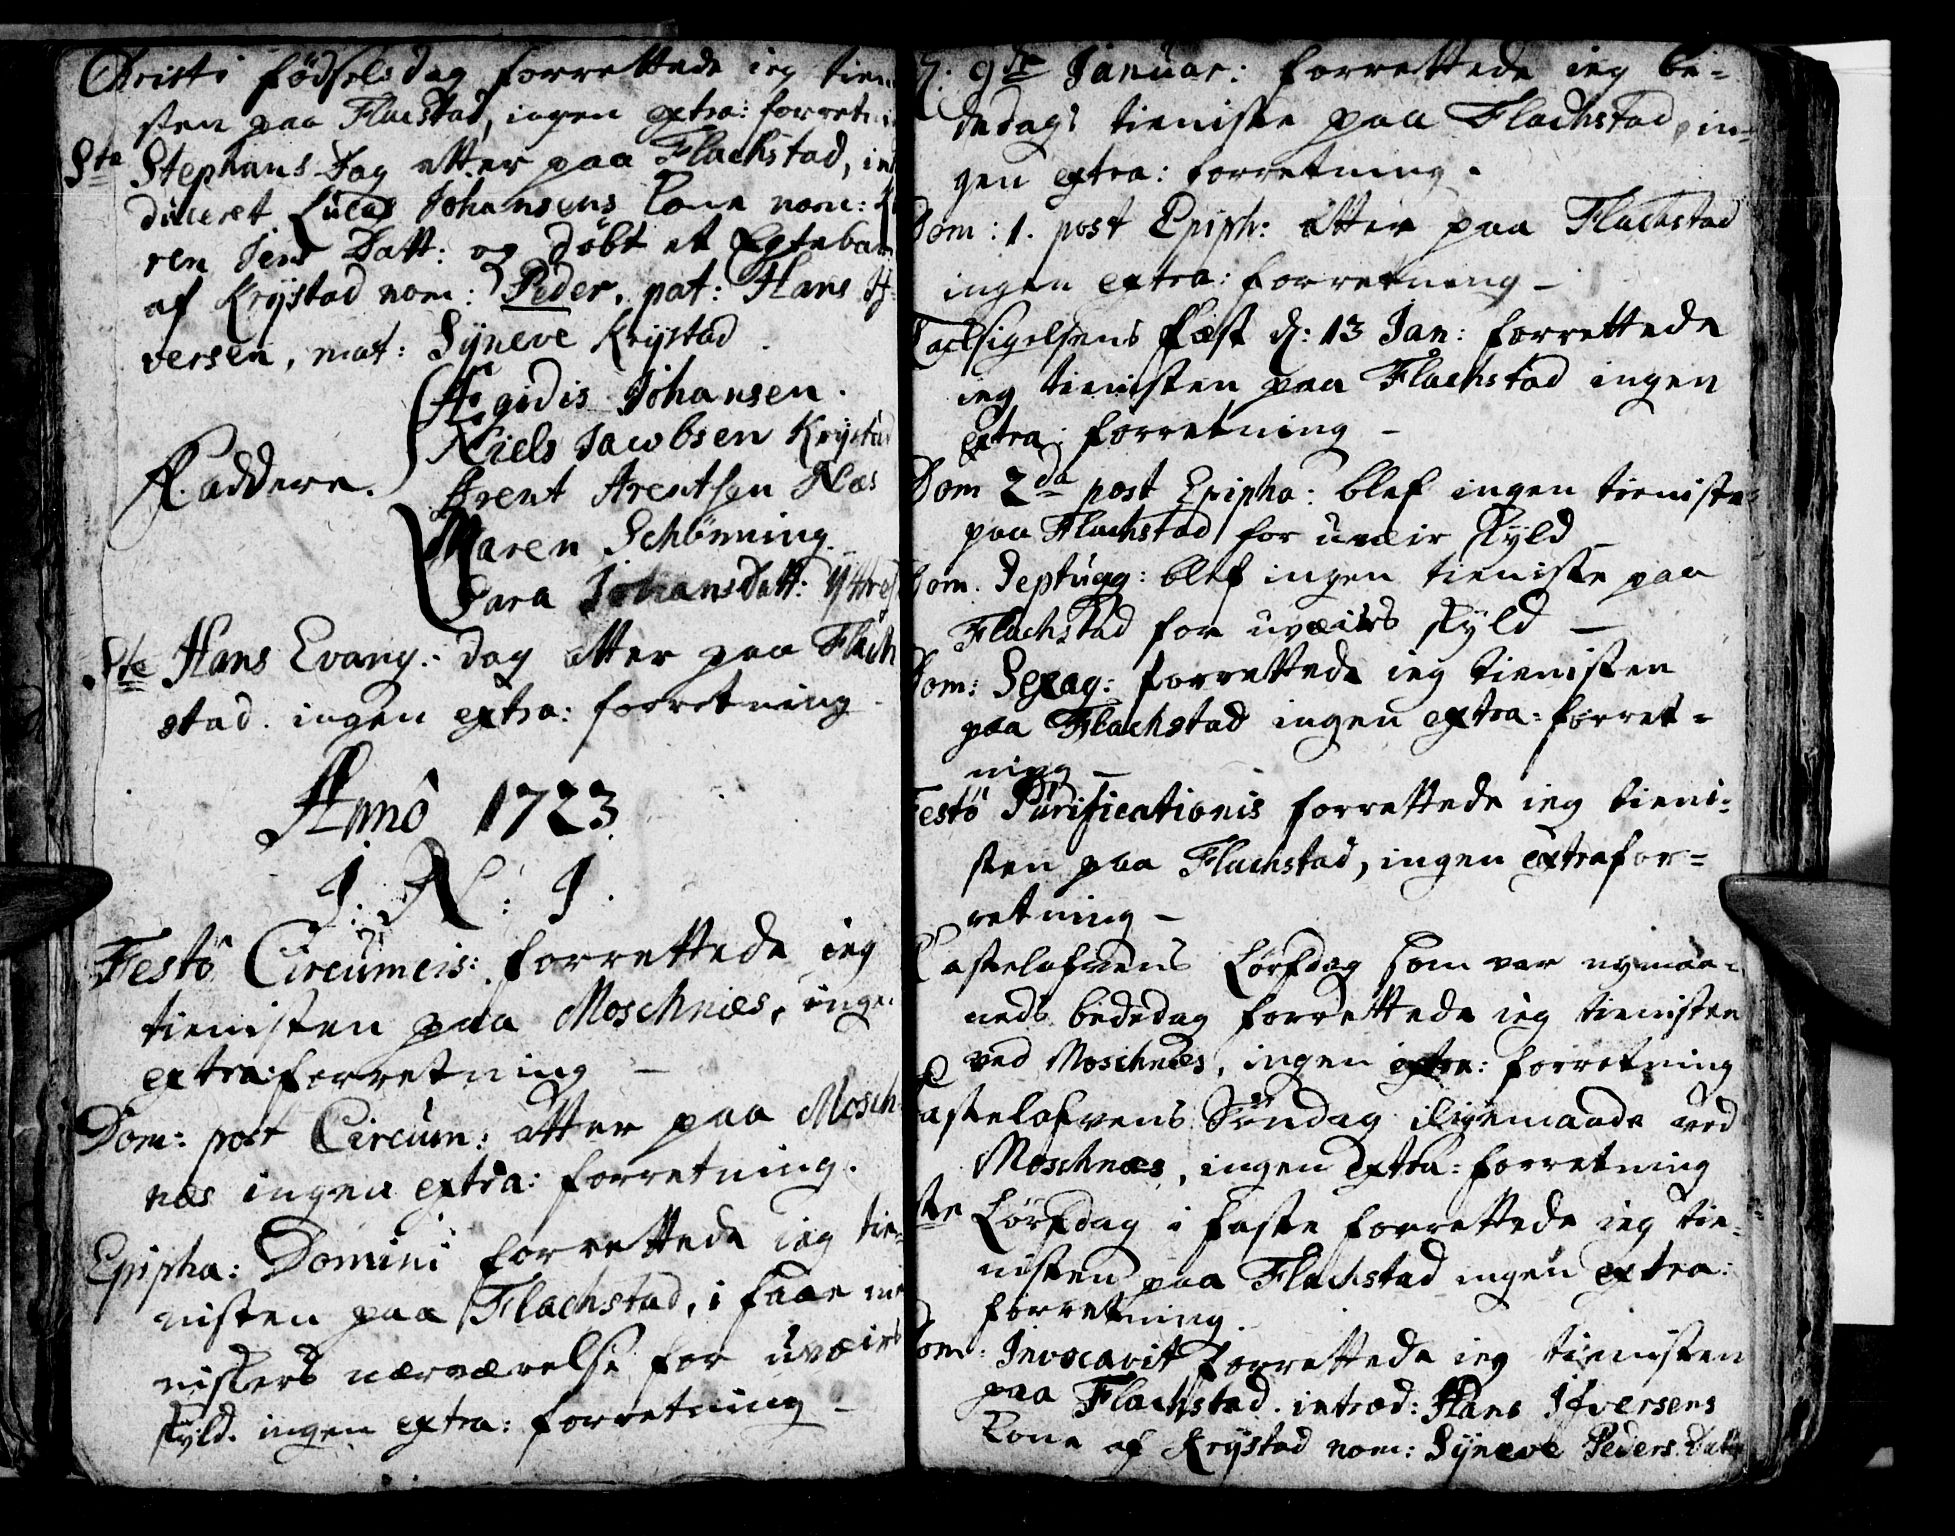 Christi fødselsdag forrettede ieg tien
sten paa Flachstad, ingen extra: forretni
Ste Stephans Dag atter paa Flachstad, int
duceret Lucas Johansens Kone nom: K
ren Jens Datt: og døbt et Egtebar
af Krystad nom: Peder. pat: Hans If
versen, mat: Syneve Krystad.
Ægidis Johansen.
Niels Jacobsen Krystad
Faddere. Arent Arentsen Næs
Maren Schönning
Sara JohansDatt: Yttres
Ste Hans Evang: dag atter paa Flach
stad. ingen extra: forretning.
Anno 1723
I. N: I.
Festo Circumcis: forrettede ieg
tienisten paa Moschnæs, inge
extra:forretning –
Dom: post Circum: atter paa Mosch
næs ingen extra: forretning.
Epipha: Domini forrettede ieg tie-
nisten paa Flachstad, i faae me
niskers nærværelse for uvæirs
skyld. ingen extra: forretning –
d. 9de Januar: forrettede ieg be-
dedags tieniste paa Flachstad, in-
gen extra: forretning.
Dom: 1. post Epiph: atter paa Flachstad
ingen extra: forretning –
Tacksigelsens fæst d: 13 Jan: forrettede
ieg tienisten paa Flachstad ingen
extra: forretning –
Dom 2da post Epipha: blef ingen tieniste
paa Flachstad for uvæir skyld –
Dom. Septuag: blef ingen tieniste paa
Flachstad for uvæirs skyld –
Dom: Sexag: forrettede ieg tienisten
paa Flachstad ingen extra: forret-
ning –
Festo Purificationis forrettede ieg tieni-
sten paa Flachstad, ingen extrafor-
retning –
Fastelafvens Lørfdag som var nymaa-
neds bededag forrettede ieg tienisten
ved Moschnæs, ingen extra: forretning
Fastelafvens Søndag iligemaade ved
Moschnæs, ingen extra: forretning
ste Lørfdag i faste forrettede ieg tie-
nisten paa Flachstad ingen extra:
forretning.
Dom: Invocavit forrettede ieg tienisten
paa Flachstad. introd: Hans Ifversens
Kone af Krystad nom: Syneve Peders Datt